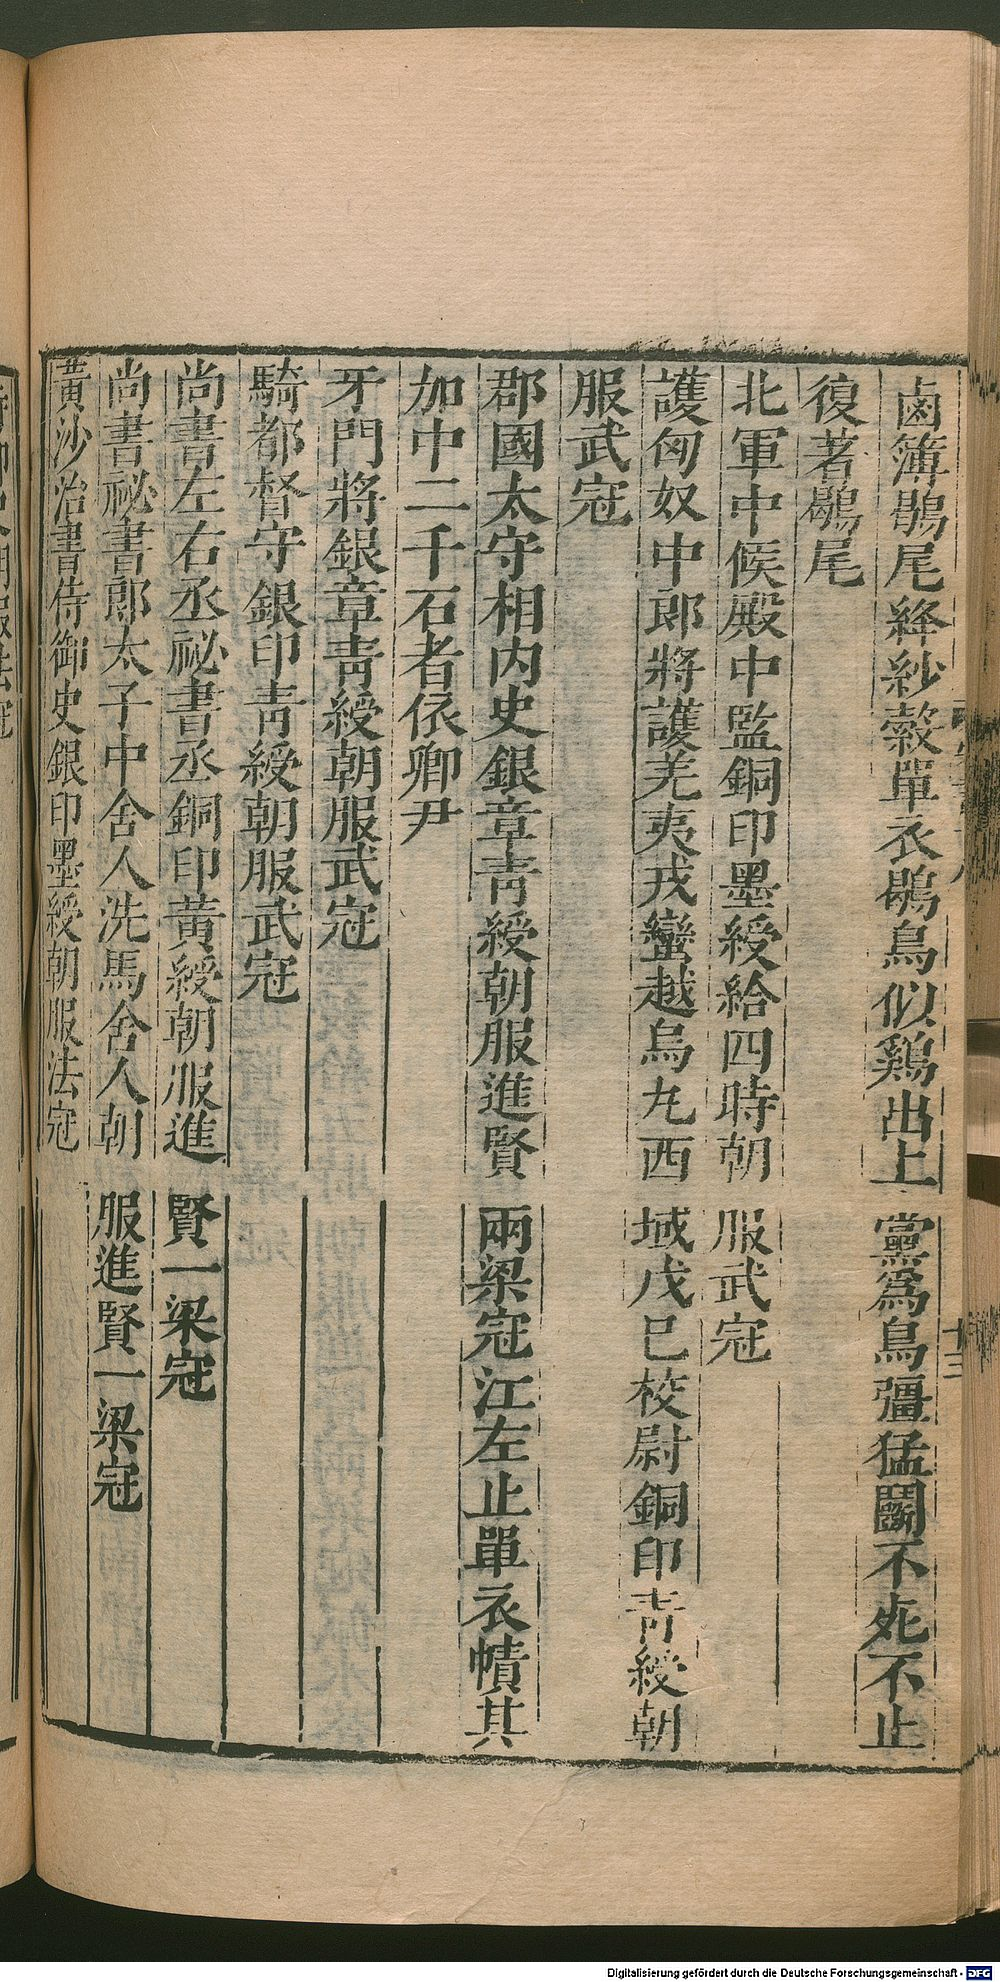 鹵簿鶡尾絳紗縠單衣鶡鳥似鷄出上黨爲鳥彊猛鬭不死不止
復著鶡尾
北軍中候殿中監銅印墨綬給四時朝服武冠
護匈奴中郎將護羌夷戎蠻越烏丸西域戊巳校尉銅印青綬朝
服武冠
郡國太守相内史銀章青綬朝服進賢兩梁冠江左止單衣幘其
加中二千石者依卿尹
牙門將銀章青綬朝服武冠
騎都督守銀印青綬朝服武冠
尚書左右丞祕書丞銅印黄綬朝服進賢一梁冠
尚書祕書郎太子中舍人洗馬舍人朝服進賢一梁冠
黄沙治書侍御史銀印墨綬朝服法冠
十三
Digitalisierung gefördert durch die Deutsche Forschungsgemeinschaft - DFG